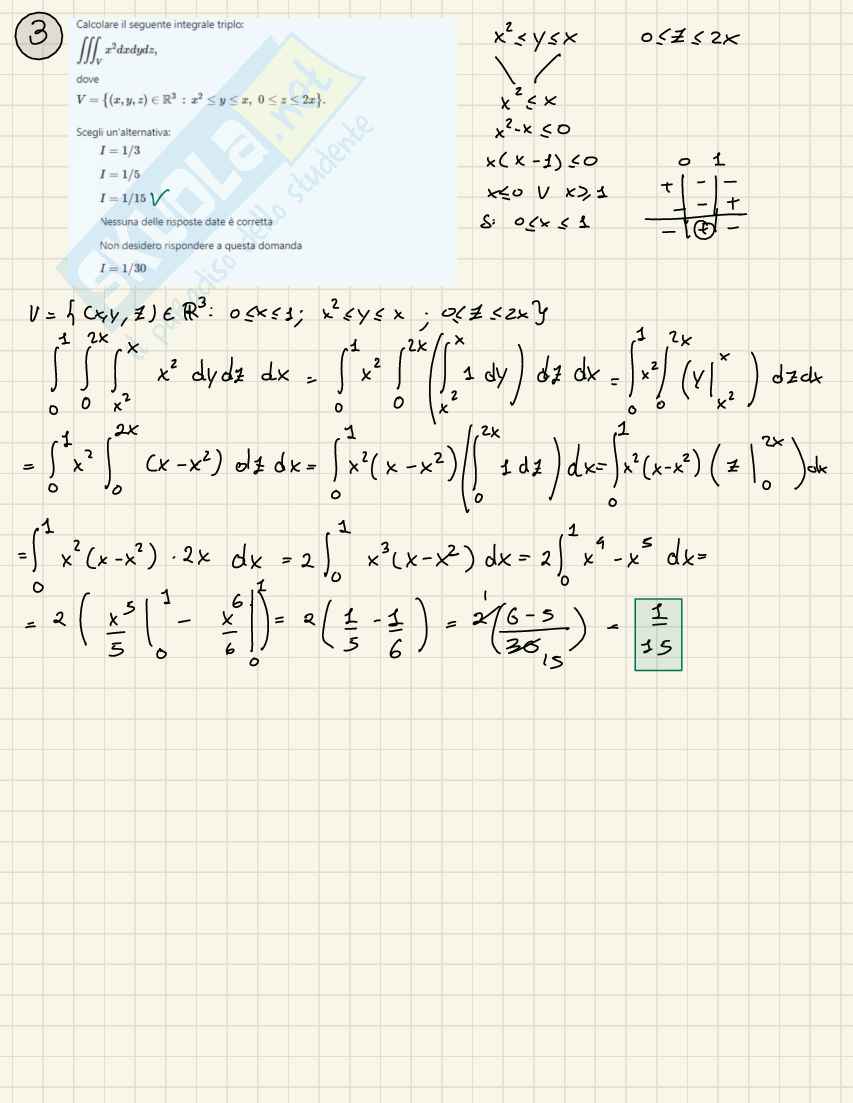 3
Calcolare il seguente integrale triplo:
∭_V x² dxdydz,
dove
V = {(x, y, z) ∈ ℝ³ : x² ≤ y ≤ x, 0 ≤ z ≤ 2x}.
Scegli un'alternativa:
I = 1/3
I = 1/5
I = 1/15 ✓
Nessuna delle risposte date è corretta
Non desidero rispondere a questa domanda
I = 1/30
SKUOLA.net
il paradiso dello studente
x² ≤ y ≤ x    0 ≤ z ≤ 2x
x² ≤ x
x² - x ≤ 0
x(x-1) ≤ 0
x ≤ 0 ∨ x ≥ 1
S: 0 ≤ x ≤ 1
0 1
+ | - | -
- | - | +
- | + | -
V = {(x, y, z) ∈ ℝ³: 0 ≤ x ≤ 1; x² ≤ y ≤ x ; 0 ≤ z ≤ 2x}
∫₀¹ ∫₀^{2x} ∫_{x²}^{x} x² dy dz dx = ∫₀¹ x² ∫₀^{2x} (∫_{x²}^{x} 1 dy) dz dx = ∫₀¹ x² ∫₀^{2x} (y|_{x²}^{x}) dz dx
= ∫₀¹ x² ∫₀^{2x} (x - x²) dz dx = ∫₀¹ x²(x - x²) (∫₀^{2x} 1 dz) dx = ∫₀¹ x²(x-x²) (z|₀^{2x}) dx
= ∫₀¹ x²(x-x²) · 2x dx = 2 ∫₀¹ x³(x-x²) dx = 2 ∫₀¹ x⁴ - x⁵ dx =
= 2 (x⁵/5 |₀¹ - x⁶/6 |₀¹) = 2 (1/5 - 1/6) = 2 1 ((6-5)/30 15) = 1/15